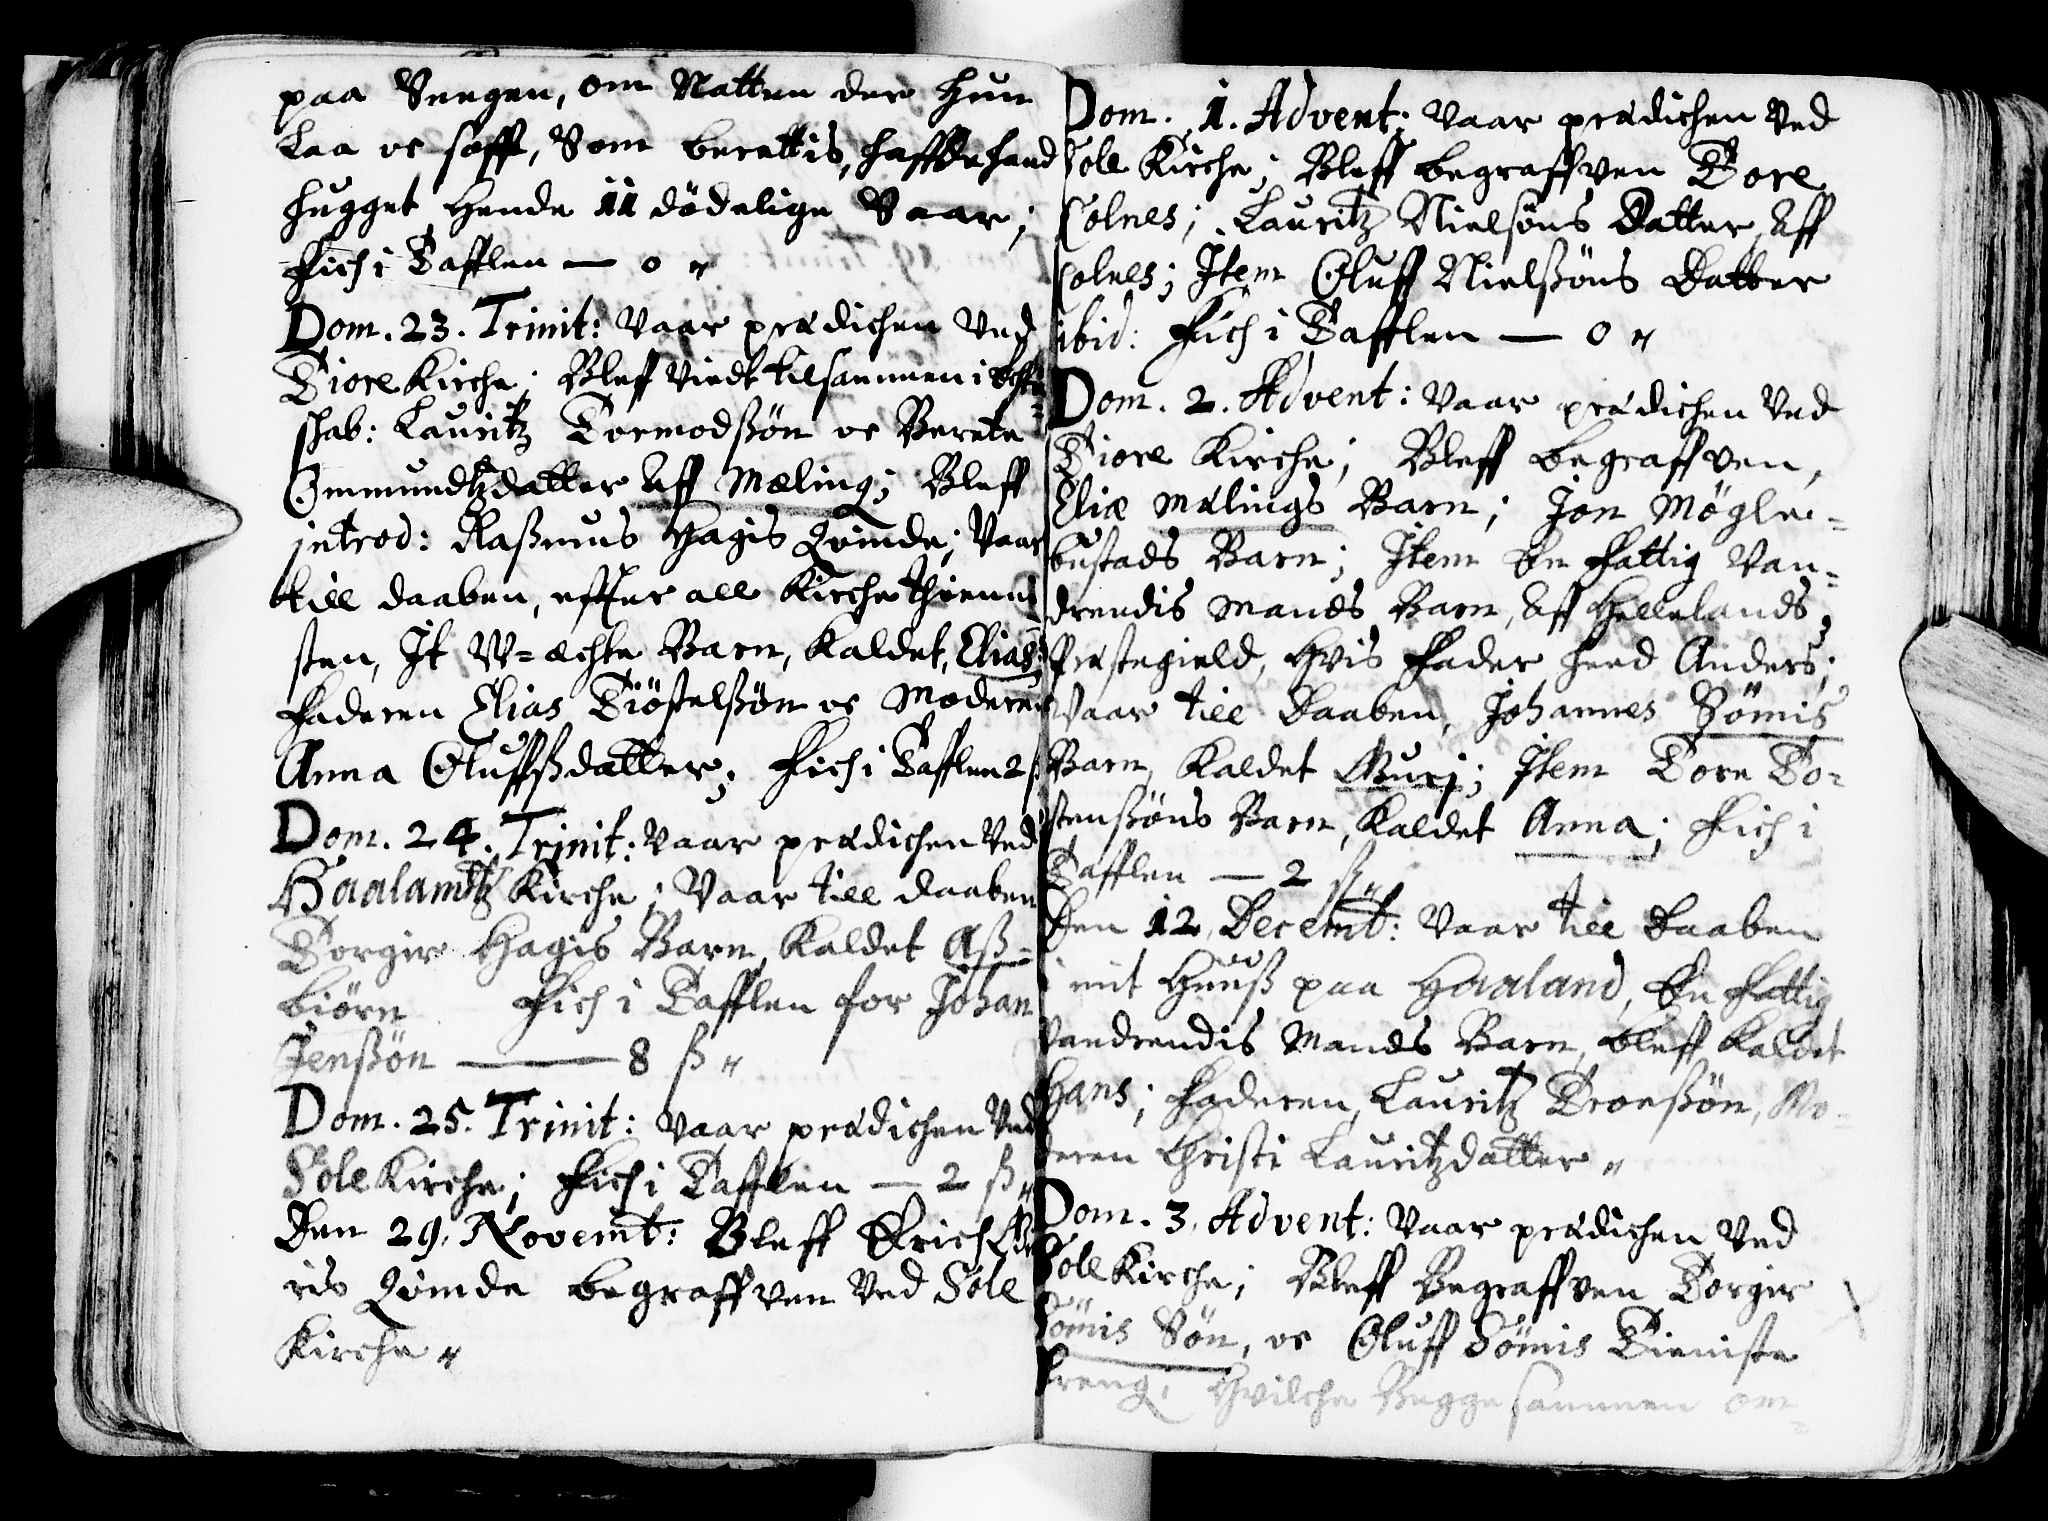 paa Sengen, om Natten der Hun
Laa oc soff, Som berettis, haffde hand
hugget Hende 11 dödelige Saar;
Fich i Tafflen — 0 „
Dom. 23. Trinit: Vaar prædichen Ved
Tiore Kirche; Bleff Viedt tilsammen i
schab: Lauritz Tormodßön oc Berete
Ommundtzdatter Aff Mæling; Bleff
introd: Raßmus Hagis Qvinde; Vaar
till daaben, effter all Kirche thienni
sten, It W=æchte Barn, Kaldet, Elias;
Faderen Elias Tiöstelßön oc Moderen
Anna Oluffsdatter; Fich i Tafflen 2 ß
Dom. 24. Trinit: Vaar prædichen Ved
Haalandtz Kirche; Vaar till daaben
Torgir Hagis Barn, Kaldet Aß=
biörn Fich i Tafflen for Johan
Jenßön — 8 ß „
Dom. 25. Trinit: Vaar prædichen Ved
Sole Kirche; Fich i Tafflen — 2 ß „
Den 29. Novemt: Bleff Erich
ris Qvinde begraffven Ved Sole
Kirche „
Dom. 1. Advent: Vaar prædichen Ved
Sole Kirche; Bleff begraffven Tore
Colnes; Lauritz Nielsöns Datter, Aff
Colnes; Item Oluff Nielßöns Datter
ibid: Fich i Tafflen — 0 „
Dom. 2. Advent: Vaar prædichen Ved
Tiore Kirche; Bleff begraffven,
Eliæ Mælings Barn; Jon Mögle=
bustads Barn; Item En Fattig Van=
drendis Mands Barn, Aff Hellelands
Præstegield, Hvis Fader heed Anders;
Vaar till Daaben, Johannes Sömis
Barn, Kaldet Guri; Item Tore To=
stenßöns Barn, Kaldet Anna; Fich i
Tafflen — 2 ß „
Den 12. Decemt: Vaar till Daaben
i mit Huuß paa Haaland, En Fattig
Vandrendis Mands Barn, bleff Kaldet
Hans; Faderen, Lauritz Troenßön, Mo=
deren Christi Lauritzdatter „
Dom. 3. Advent: Vaar prædichen Ved
Sole Kirche; Bleff Begraffven Torgir
Sömis Sön, oc Oluff Sömis Tieniste
dreng, Hvilche Begge sammen om=